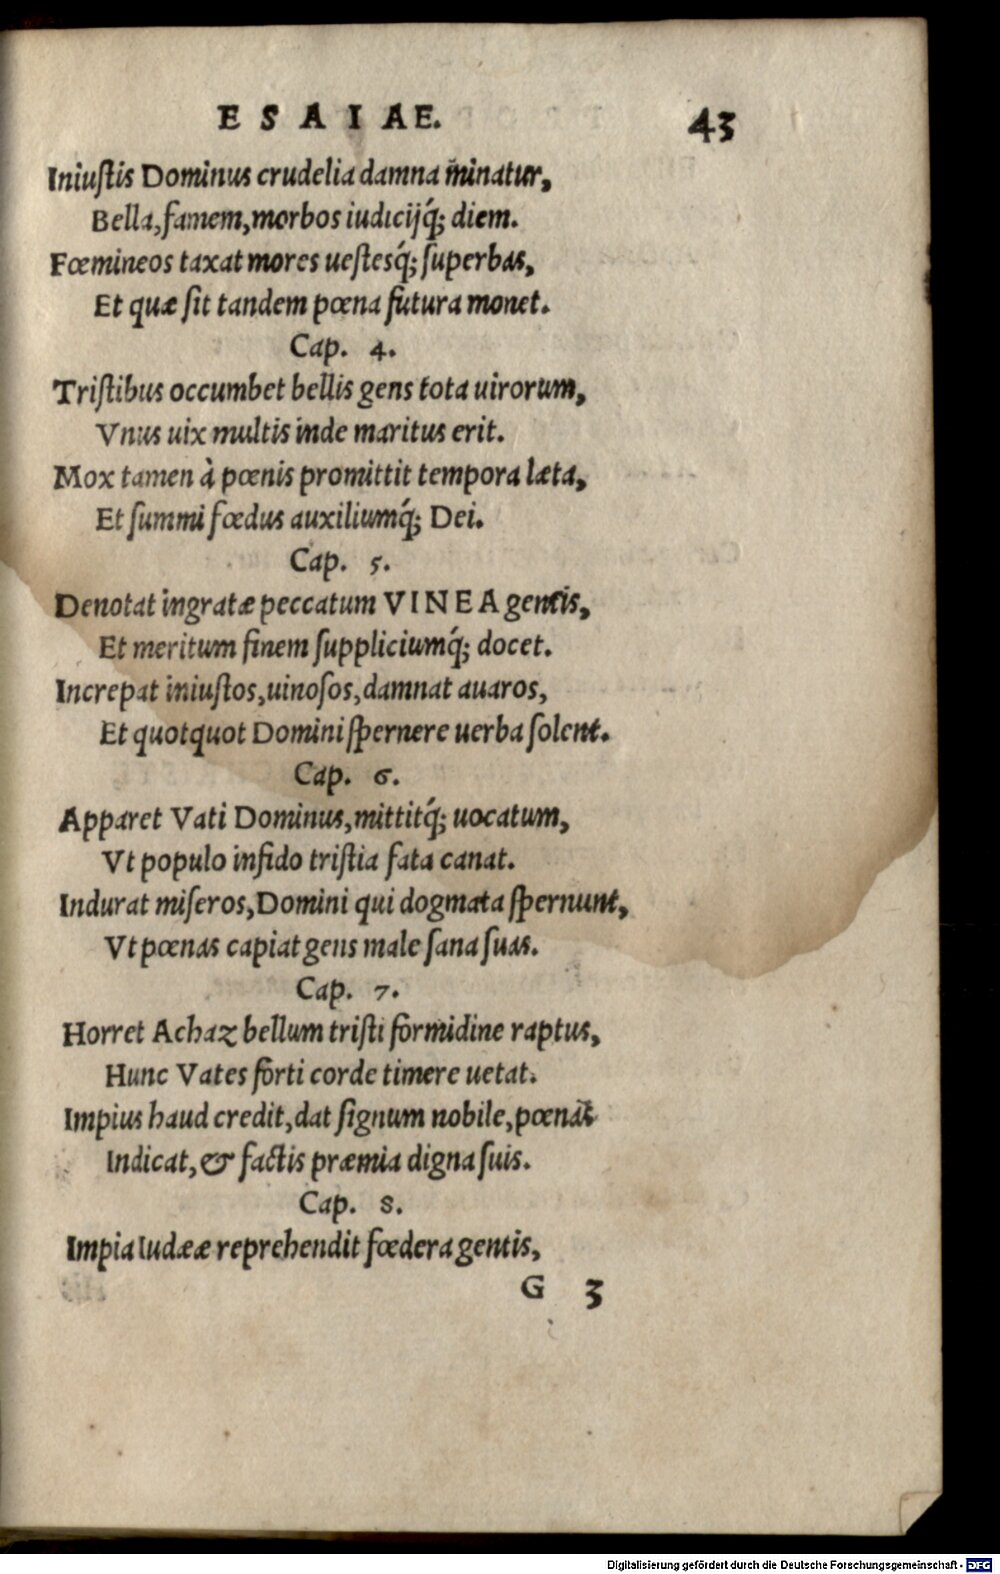 ESAIAE. 43
Iniuſtis Dominus crudelia damna minatur,
Bella, famem, morbos iudicijq́; diem.
Fœmineos taxat mores ueſtesq́; ſuperbas,
Et quæ ſit tandem pœna futura monet.
Cap. 4.
Triſtibus occumbet bellis gens tota uirorum,
Vnus uix multis inde maritus erit.
Mox tamen à pœnis promittit tempora læta,
Et ſummi fœdus auxiliumq́; Dei.
Cap. 5.
Denotat ingratæ peccatum VINEA gentis,
Et meritum finem ſuppliciumq́; docet.
Increpat iniuſtos, uinoſos, damnat auaros,
Et quotquot Domini ſpernere uerba ſolent.
Cap. 6.
Apparet Vati Dominus, mittitq́; uocatum,
Vt populo infido triſtia fata canat.
Indurat miſeros, Domini qui dogmata ſpernunt,
Vt pœnas capiat gens male ſana ſuas.
Cap. 7.
Horret Achaz bellum triſti formidine raptus,
Hunc Vates forti corde timere uetat.
Impius haud credit, dat ſignum nobile, pœnas
Indicat, & factis præmia digna ſuis.
Cap. 8.
Impia Iudææ reprehendit fœdera gentis,
G 3
Digitalisierung gefördert durch die Deutsche Forschungsgemeinschaft - DFG